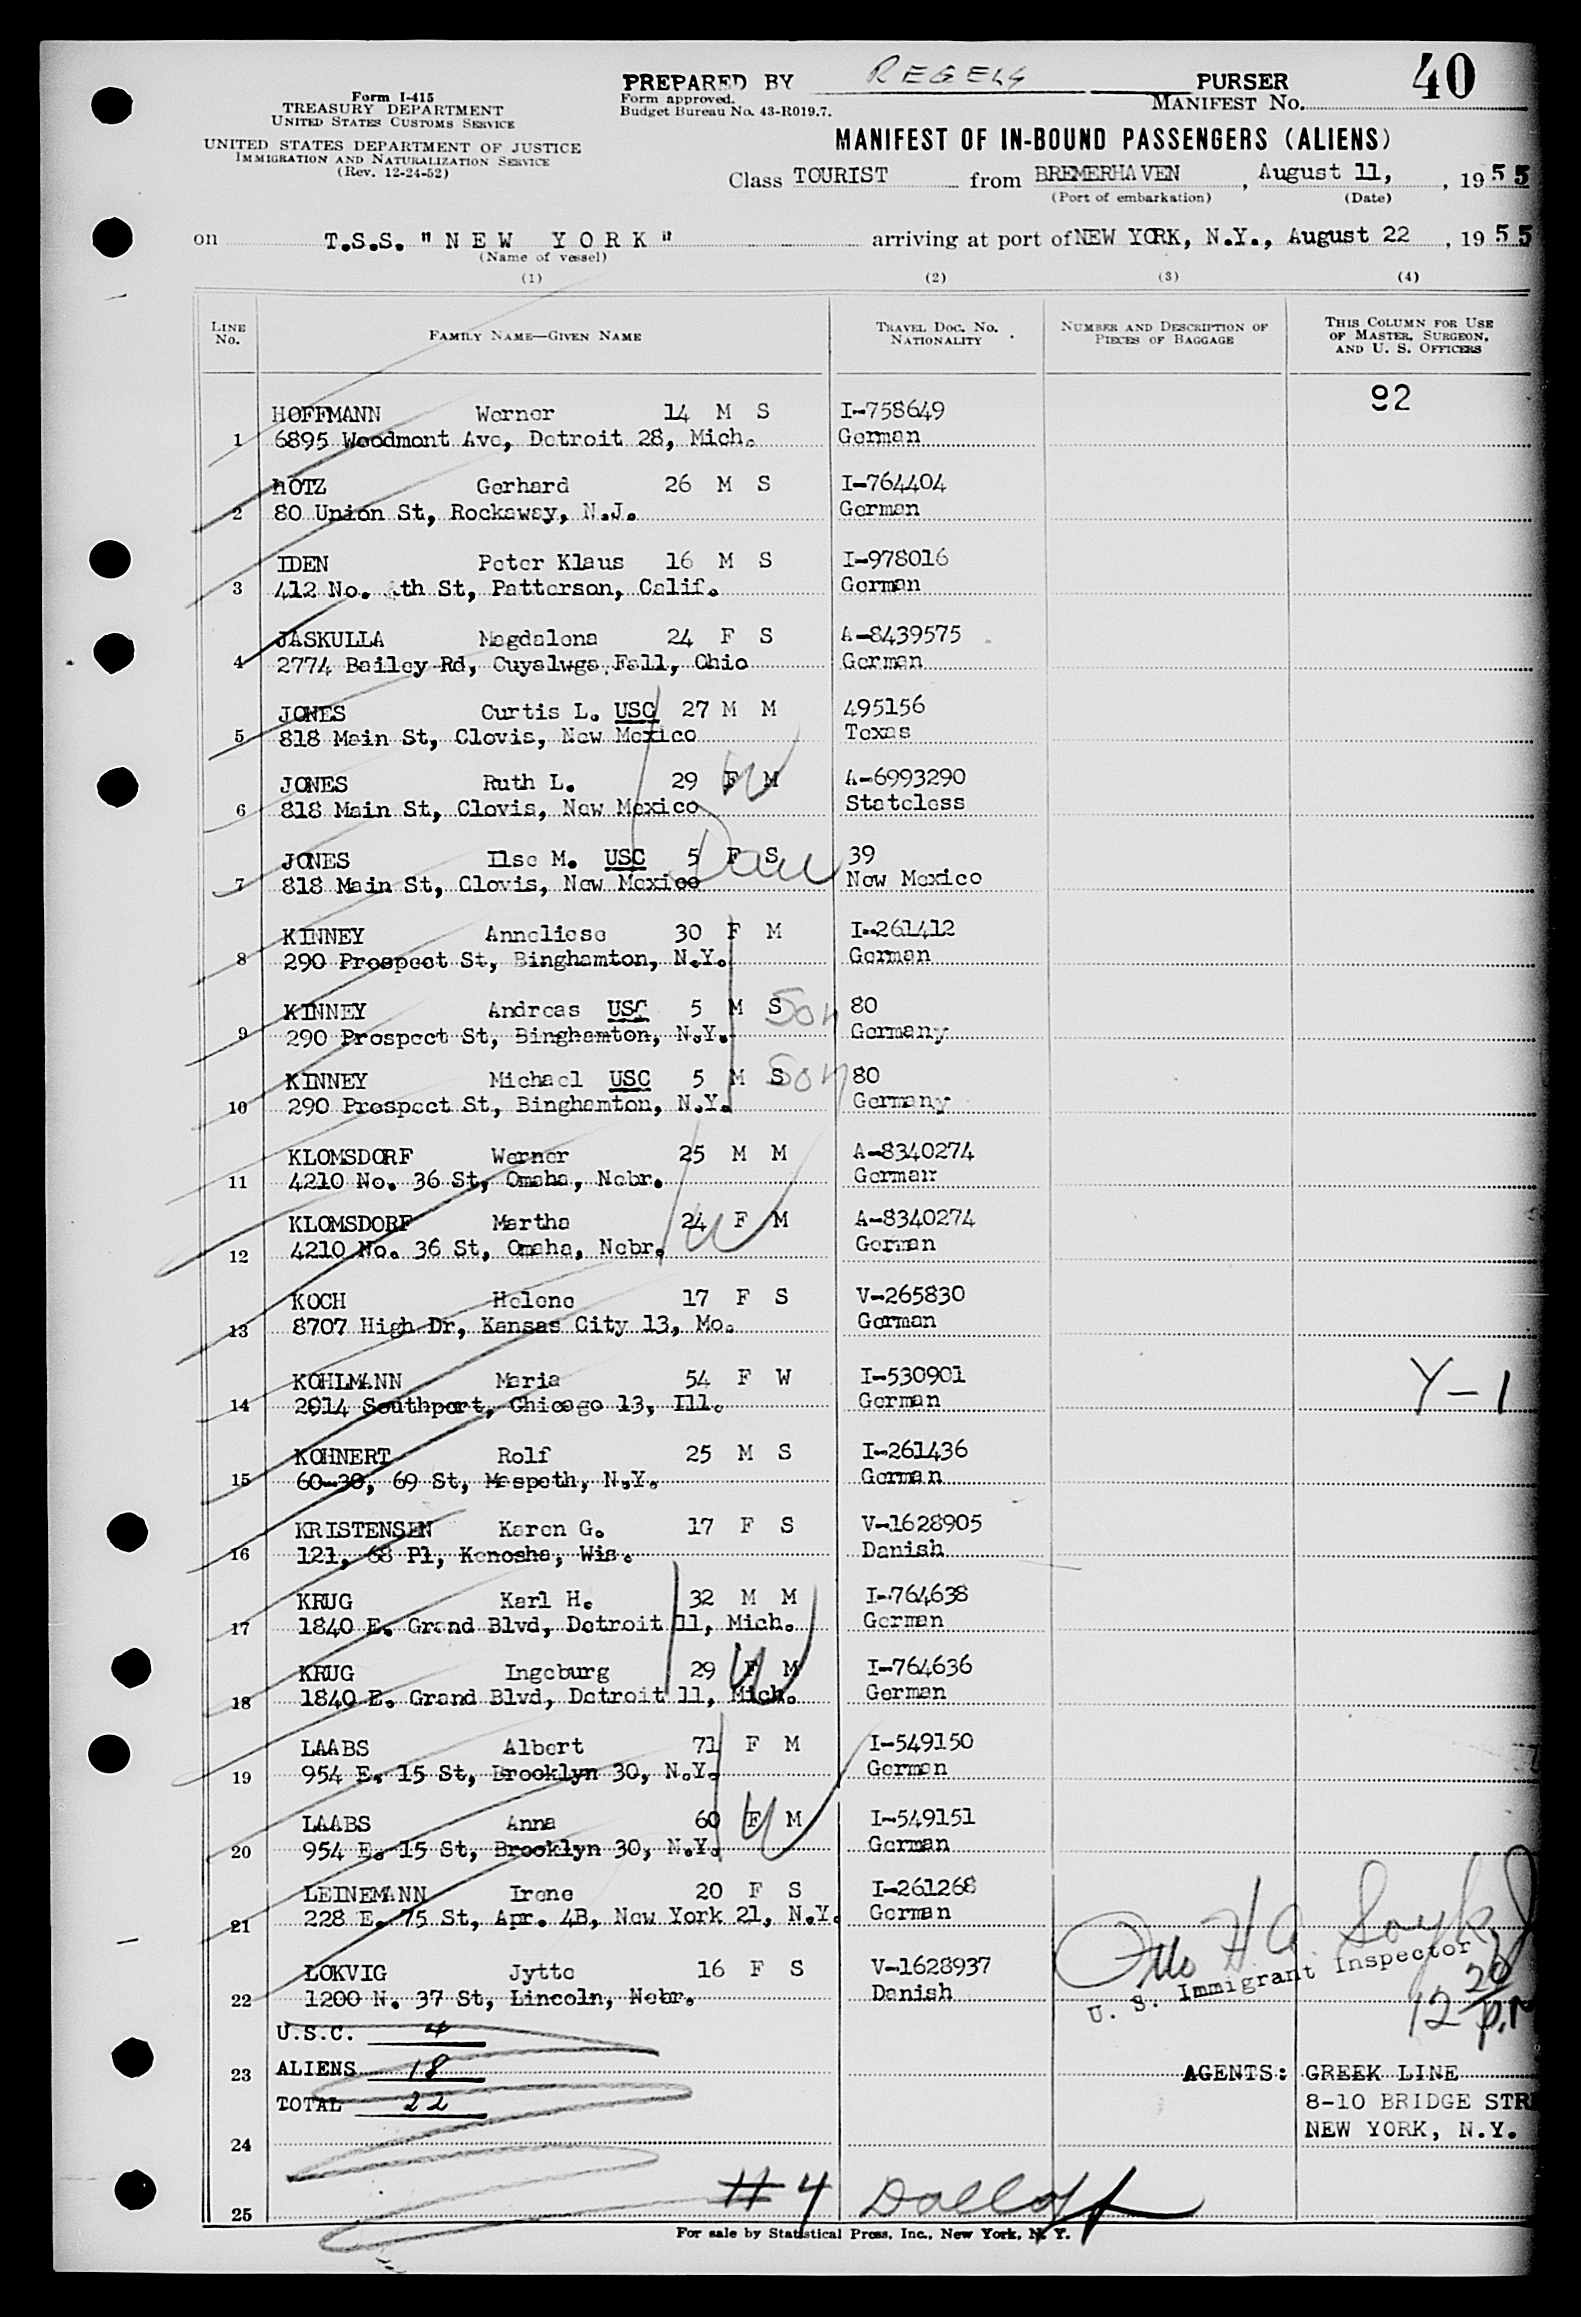 40
PREPARED BY REGELS PURSER
Form approved.
Budget Bureau No. 43-R019.7.
MANIFEST No.
Form I-415
TREASURY DEPARTMENT
UNITED STATES CUSTOMS SERVICE
UNITED STATES DEPARTMENT OF JUSTICE
IMMIGRATION AND NATURALIZATION SERVICE
(Rev. 12-24-52)
MANIFEST OF IN-BOUND PASSENGERS (ALIENS)
Class TOURIST from BREMERHAVEN, August 11, 1955
(Port of embarkation) (Date)
on T.S.S. "NEW YORK" arriving at port of NEW YORK, N.Y., August 22, 1955
(Name of vessel)
(1) (2) (3) (4)
LINE No. FAMILY NAME—GIVEN NAME TRAVEL DOC. No. NATIONALITY NUMBER AND DESCRIPTION OF PIECES OF BAGGAGE THIS COLUMN FOR USE OF MASTER, SURGEON, AND U. S. OFFICERS
92
HOFFMANN Werner 14 M S I-758649
1 6895 Woodmont Ave, Detroit 28, Mich. German
HOTZ Gerhard 26 M S I-764404
2 80 Union St, Rockaway, N.J. German
IDEN Peter Klaus 16 M S I-978016
3 412 No. 4th St, Patterson, Calif. German
JASKULLA Magdalena 24 F S A-8439575
4 2774 Bailey Rd, Cuyaluga Fall, Ohio German
JONES Curtis L. USC 27 M M 495156
5 818 Main St, Clovis, New Mexico Texas
JONES Ruth L. 29 F M W A-6993290
6 818 Main St, Clovis, New Mexico Stateless
JONES Ilse M. USC 5 F S Dau 39
7 818 Main St, Clovis, New Mexico New Mexico
KINNEY Anneliese 30 F M I-261412
8 290 Prospect St, Binghamton, N.Y. German
KINNEY Andreas USC 5 M S Son 80
9 290 Prospect St, Binghamton, N.Y. Germany
KINNEY Michael USC 5 M S Son 80
10 290 Prospect St, Binghamton, N.Y. Germany
KLOMSDORF Werner 25 M M A-8340274
11 4210 No. 36 St, Omaha, Nebr. German
KLOMSDORF Martha 24 F M W A-8340274
12 4210 No. 36 St, Omaha, Nebr. German
KOCH Helene 17 F S V-265830
13 8707 High Dr, Kansas City 13, Mo. German
KOHLMANN Maria 54 F W I-530901 Y-1
14 2814 Southport, Chicago 13, Ill. German
KOHNERT Rolf 25 M S I-261436
15 60-30, 69 St, Maspeth, N.Y. German
KRISTENSEN Karen G. 17 F S V-1628905
16 121, 68 Pl, Kenosha, Wis. Danish
KRUG Karl H. 32 M M I-764638
17 1840 E. Grand Blvd, Detroit 11, Mich. German
KRUG Ingeburg 29 F M W I-764636
18 1840 E. Grand Blvd, Detroit 11, Mich. German
LAABS Albert 71 F M I-549150
19 954 E. 15 St, Brooklyn 30, N.Y. German
LAABS Anna 60 F M W I-549151
20 954 E. 15 St, Brooklyn 30, N.Y. German
LEINEMANN Irene 20 F S I-261268
21 228 E. 75 St, Apr. 4B, New York 21, N.Y. German
LOKVIG Jytte 16 F S V-1628937
22 1200 N. 37 St, Lincoln, Nebr. Danish
Otto H A.
U. S. Immigrant Inspector
12 20 P.M
U.S.C. 4
23 ALIENS 18 AGENTS: GREEK LINE
TOTAL 22 8-10 BRIDGE STR
24 NEW YORK, N.Y.
25 #4
For sale by Statistical Press, Inc., New York, N. Y.